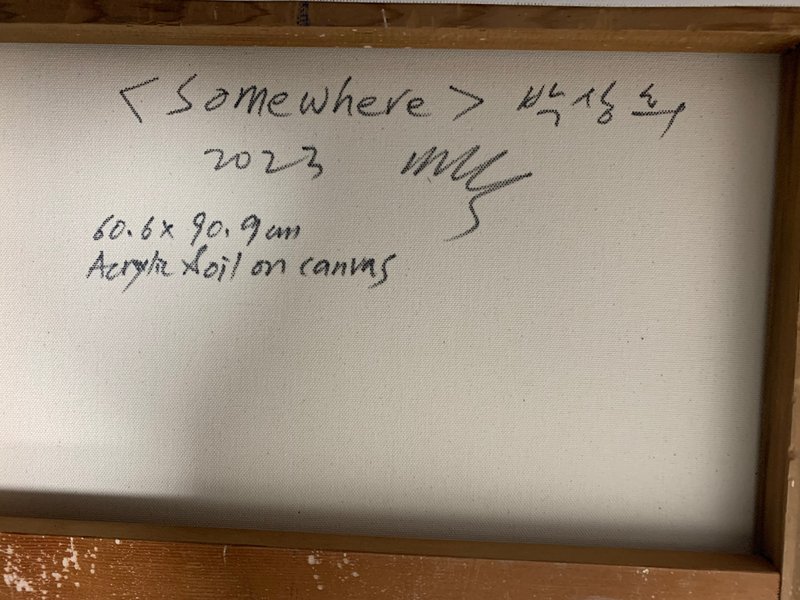 <Somewhere>
2023
60.6x 90.9cm
Acrylic &oil on canvas